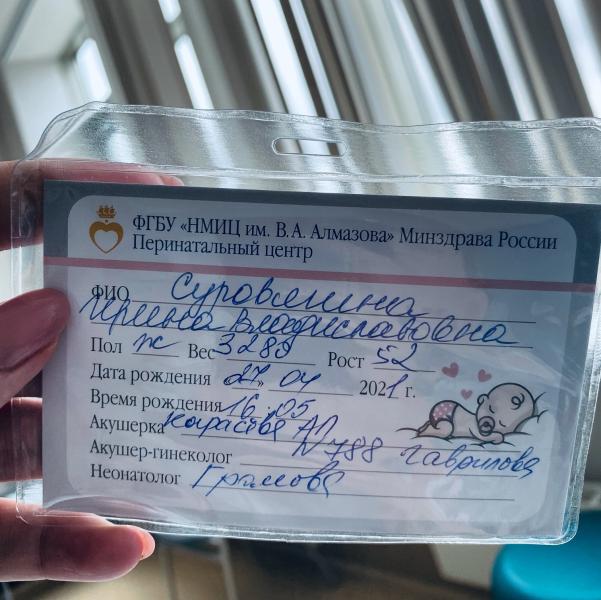 ФГБУ «НМИЦ им. В.А. Алмазова» Минздрава России
Перинатальный центр
ФИО Суровягина
Ирина Владиславовна
Пол ж Вес 3280 Рост 52
Дата рождения «27» 04 2021 г.
Время рождения 16 05
Акушерка АЛ
Акушер-гинеколог N788 Гаврилова
Неонатолог Громова